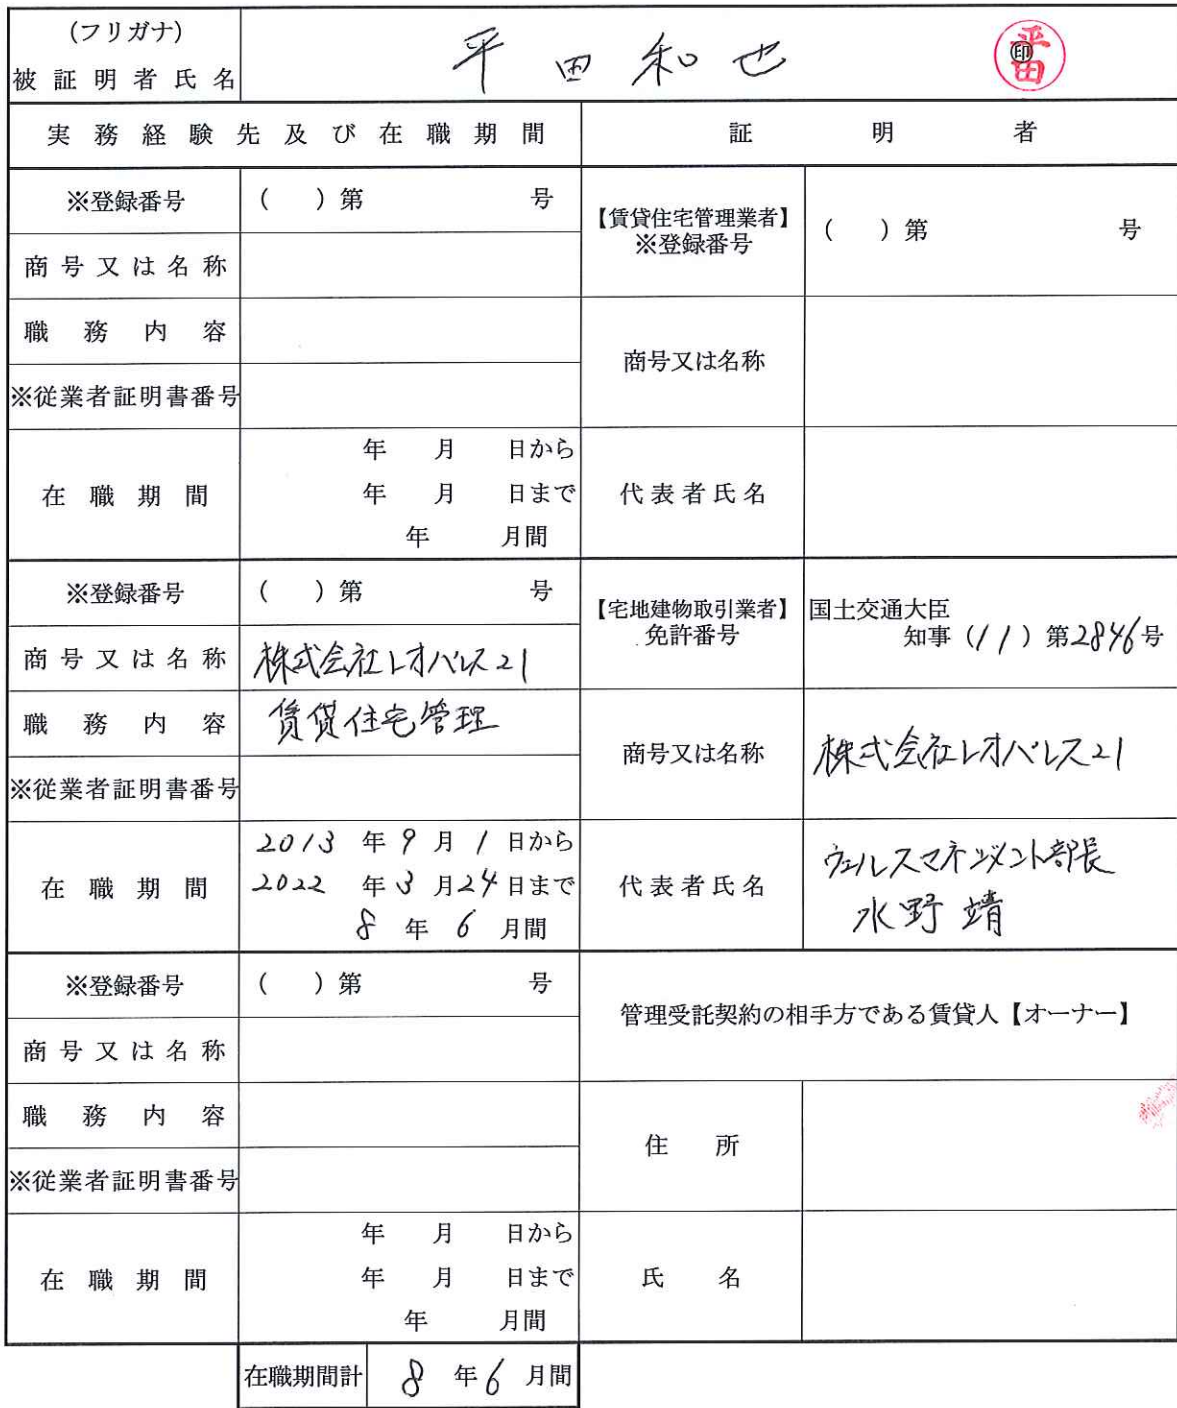 (フリガナ)
被証明者氏名
平田和也
平田
印
実務経験先及び在職期間
証明者
※登録番号
( )第 号
【賃貸住宅管理業者】
※登録番号
( )第 号
商号又は名称
職務内容
商号又は名称
※従業者証明書番号
在職期間
年 月 日から
年 月 日まで
年 月間
代表者氏名
※登録番号
( )第 号
【宅地建物取引業者】
免許番号
国土交通大臣
知事(11)第2846号
商号又は名称
株式会社レオパレス21
職務内容
賃貸住宅管理
商号又は名称
株式会社レオパレス21
※従業者証明書番号
在職期間
2013年9月1日から
2022年3月24日まで
8年6月間
代表者氏名
ウェルスマネジメント部長
水野 靖
※登録番号
( )第 号
管理受託契約の相手方である賃貸人【オーナー】
商号又は名称
職務内容
住所
※従業者証明書番号
在職期間
年 月 日から
年 月 日まで
年 月間
氏名
在職期間計
8年6月間